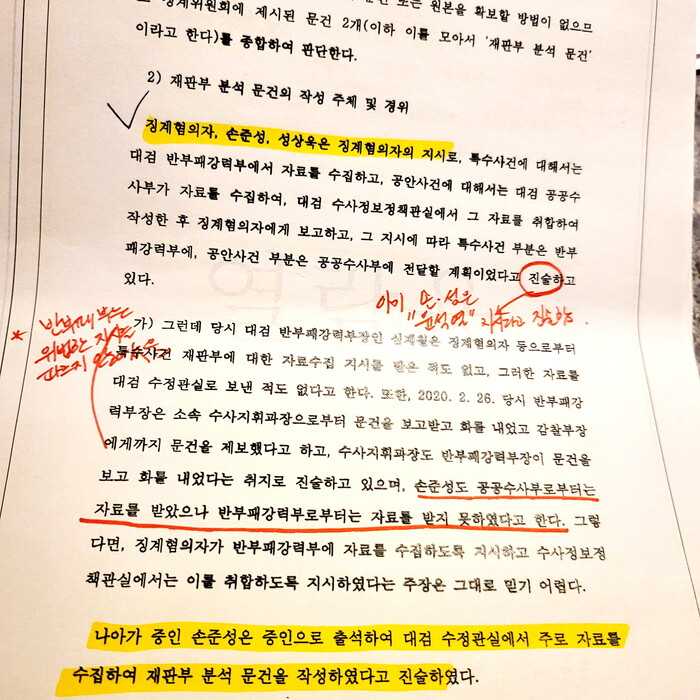 징계위원회에 제시된 문건 2개(이하 이를 모아서 ‘재판부 분석 문건’
이라고 한다)를 종합하여 판단한다.
2) 재판부 분석 문건의 작성 주체 및 경위
징계혐의자, 손준성, 성상욱은 징계혐의자의 지시로, 특수사건에 대해서는
대검 반부패강력부에서 자료를 수집하고, 공안사건에 대해서는 대검 공공수
사부가 자료를 수집하여, 대검 수사정보정책관실에서 그 자료를 취합하여
작성한 후 징계혐의자에게 보고하고, 그 지시에 따라 특수사건 부분은 반부
패강력부에, 공안사건 부분은 공공수사부에 전달할 계획이었다고 진술하고
있다.
아이 손·성은
"윤석열" 지시라고 진술함.
* 반부패부는
위법한 지시면
따르지
가) 그런데 당시 대검 반부패강력부장인 심재철은 징계혐의자 등으로부터
특수사건 재판부에 대한 자료수집 지시를 받은 적도 없고, 그러한 자료를
대검 수정관실로 보낸 적도 없다고 한다. 또한, 2020. 2. 26. 당시 반부패강
력부장은 소속 수사지휘과장으로부터 문건을 보고받고 화를 내었고 감찰부장
에게까지 문건을 제보했다고 하고, 수사지휘과장도 반부패강력부장이 문건을
보고 화를 내었다는 취지로 진술하고 있으며, 손준성도 공공수사부로부터는
자료를 받았으나 반부패강력부로부터는 자료를 받지 못하였다고 한다. 그렇
다면, 징계혐의자가 반부패강력부에 자료를 수집하도록 지시하고 수사정보정
책관실에서는 이를 취합하도록 지시하였다는 주장은 그대로 믿기 어렵다.
나아가 증인 손준성은 증인으로 출석하여 대검 수정관실에서 주로 자료를
수집하여 재판부 분석 문건을 작성하였다고 진술하였다.